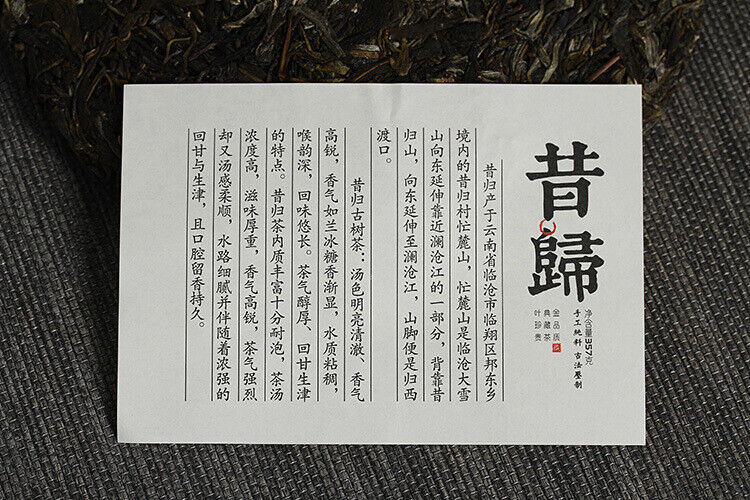 昔歸
净含量357克
手工純料 古法壓制
金品质
典藏茶
叶珍贵
昔归产于云南省临沧市临翔区邦东乡
境内的昔归村忙麓山，忙麓山是临沧大雪
山向东延伸靠近澜沧江的一部分，背靠昔
归山，向东延伸至澜沧江，山脚便是归西
渡口。
昔归古树茶：汤色明亮清澈、香气
高锐，香气如兰冰糖香渐显，水质粘稠，
喉韵深，回味悠长。茶气醇厚、回甘生津
的特点。昔归茶内质丰富十分耐泡，茶汤
浓度高，滋味厚重，香气高锐，茶气强烈
却又汤感柔顺，水路细腻并伴随着浓强的
回甘与生津，且口腔留香持久。